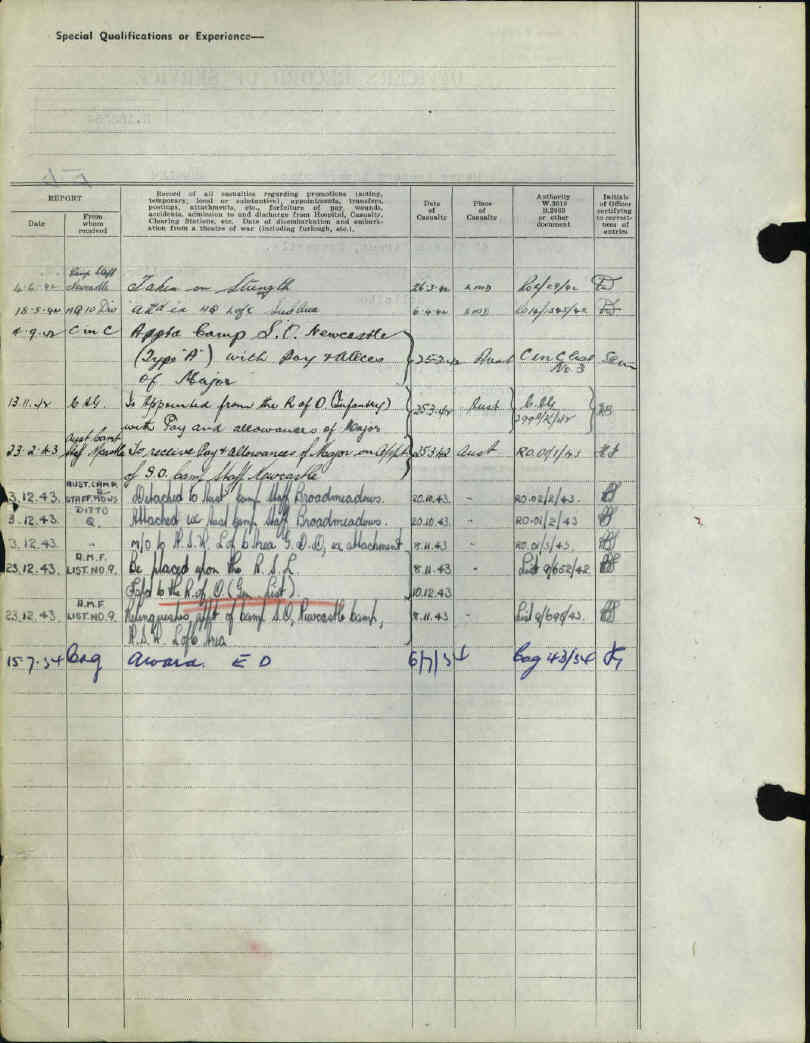 Special Qualifications or Experience—
REPORT
Date
From whom received
Record of all casualties regarding promotions (acting,
temporary, local or substantive), appointments, transfers,
postings, attachments, etc., forfeiture of pay, wounds,
accidents, admission to and discharge from Hospital, Casualty,
Clearing Stations, etc. Date of disembarkation and embark-
ation from a theatre of war (including furlough, etc.).
Date of Casualty
Place of Casualty
Authority W.3010 B.2069 or other document
Initials of Officer certifying to correct-ness of entries
Camp Staff
Newcastle Taken on Strength 26.3.42
18-5-42 HQ 10 Div 6-4-42
4-9-42 C in C Apptd Camp S.O. Newcastle
(Type "A") with Pay & Allces 25-3-42 Aust
No. 3
of Major
13.11.42 To be Appointed from the R of O. (Infantry) 25.3.42 Aust
with Pay and allowances of Major
Aust Camp
23.2.43 Staff To receive Pay & Allowances of Major on Appt 25.3.42 Aust RO.01/1/43
of S.O. Camp Staff Newcastle
AUST. CAMP
3.12.43. Detached to Aust Camp Staff Broadmeadows. 20.10.43. - RO.02/2/43.
DITTO
3.12.43. Q. Attached Aust Camp Staff Broadmeadows. 20.10.43. - RO.01/2/43
3.12.43. - M/O to N.S.W. L of C Area G.D.D, ex attachment 8.11.43 - RO.01/3/43.
A.M.F.
23.12.43. LIST.NO.9. Be placed upon the R.S.L. 8.11.43 - List 9/652/42
to the R. of O (Gen List). 10.12.43
A.M.F.
23.12.43. LIST.NO.9. Relinquishes appt of Camp S.O, Newcastle Camp, 8.11.43. -
N.S.W. L of C Area
15-7-54 Cag Award. E D 6/7/54 Cag 43/54